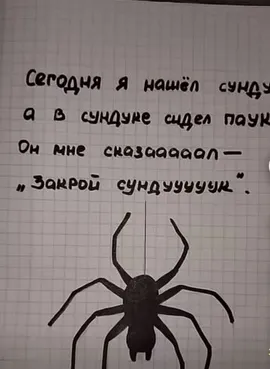 Сегодня я нашёл сунду
а в сундуке сидел паук
Он мне сказааааал—
„Закрой сундуууууук“.